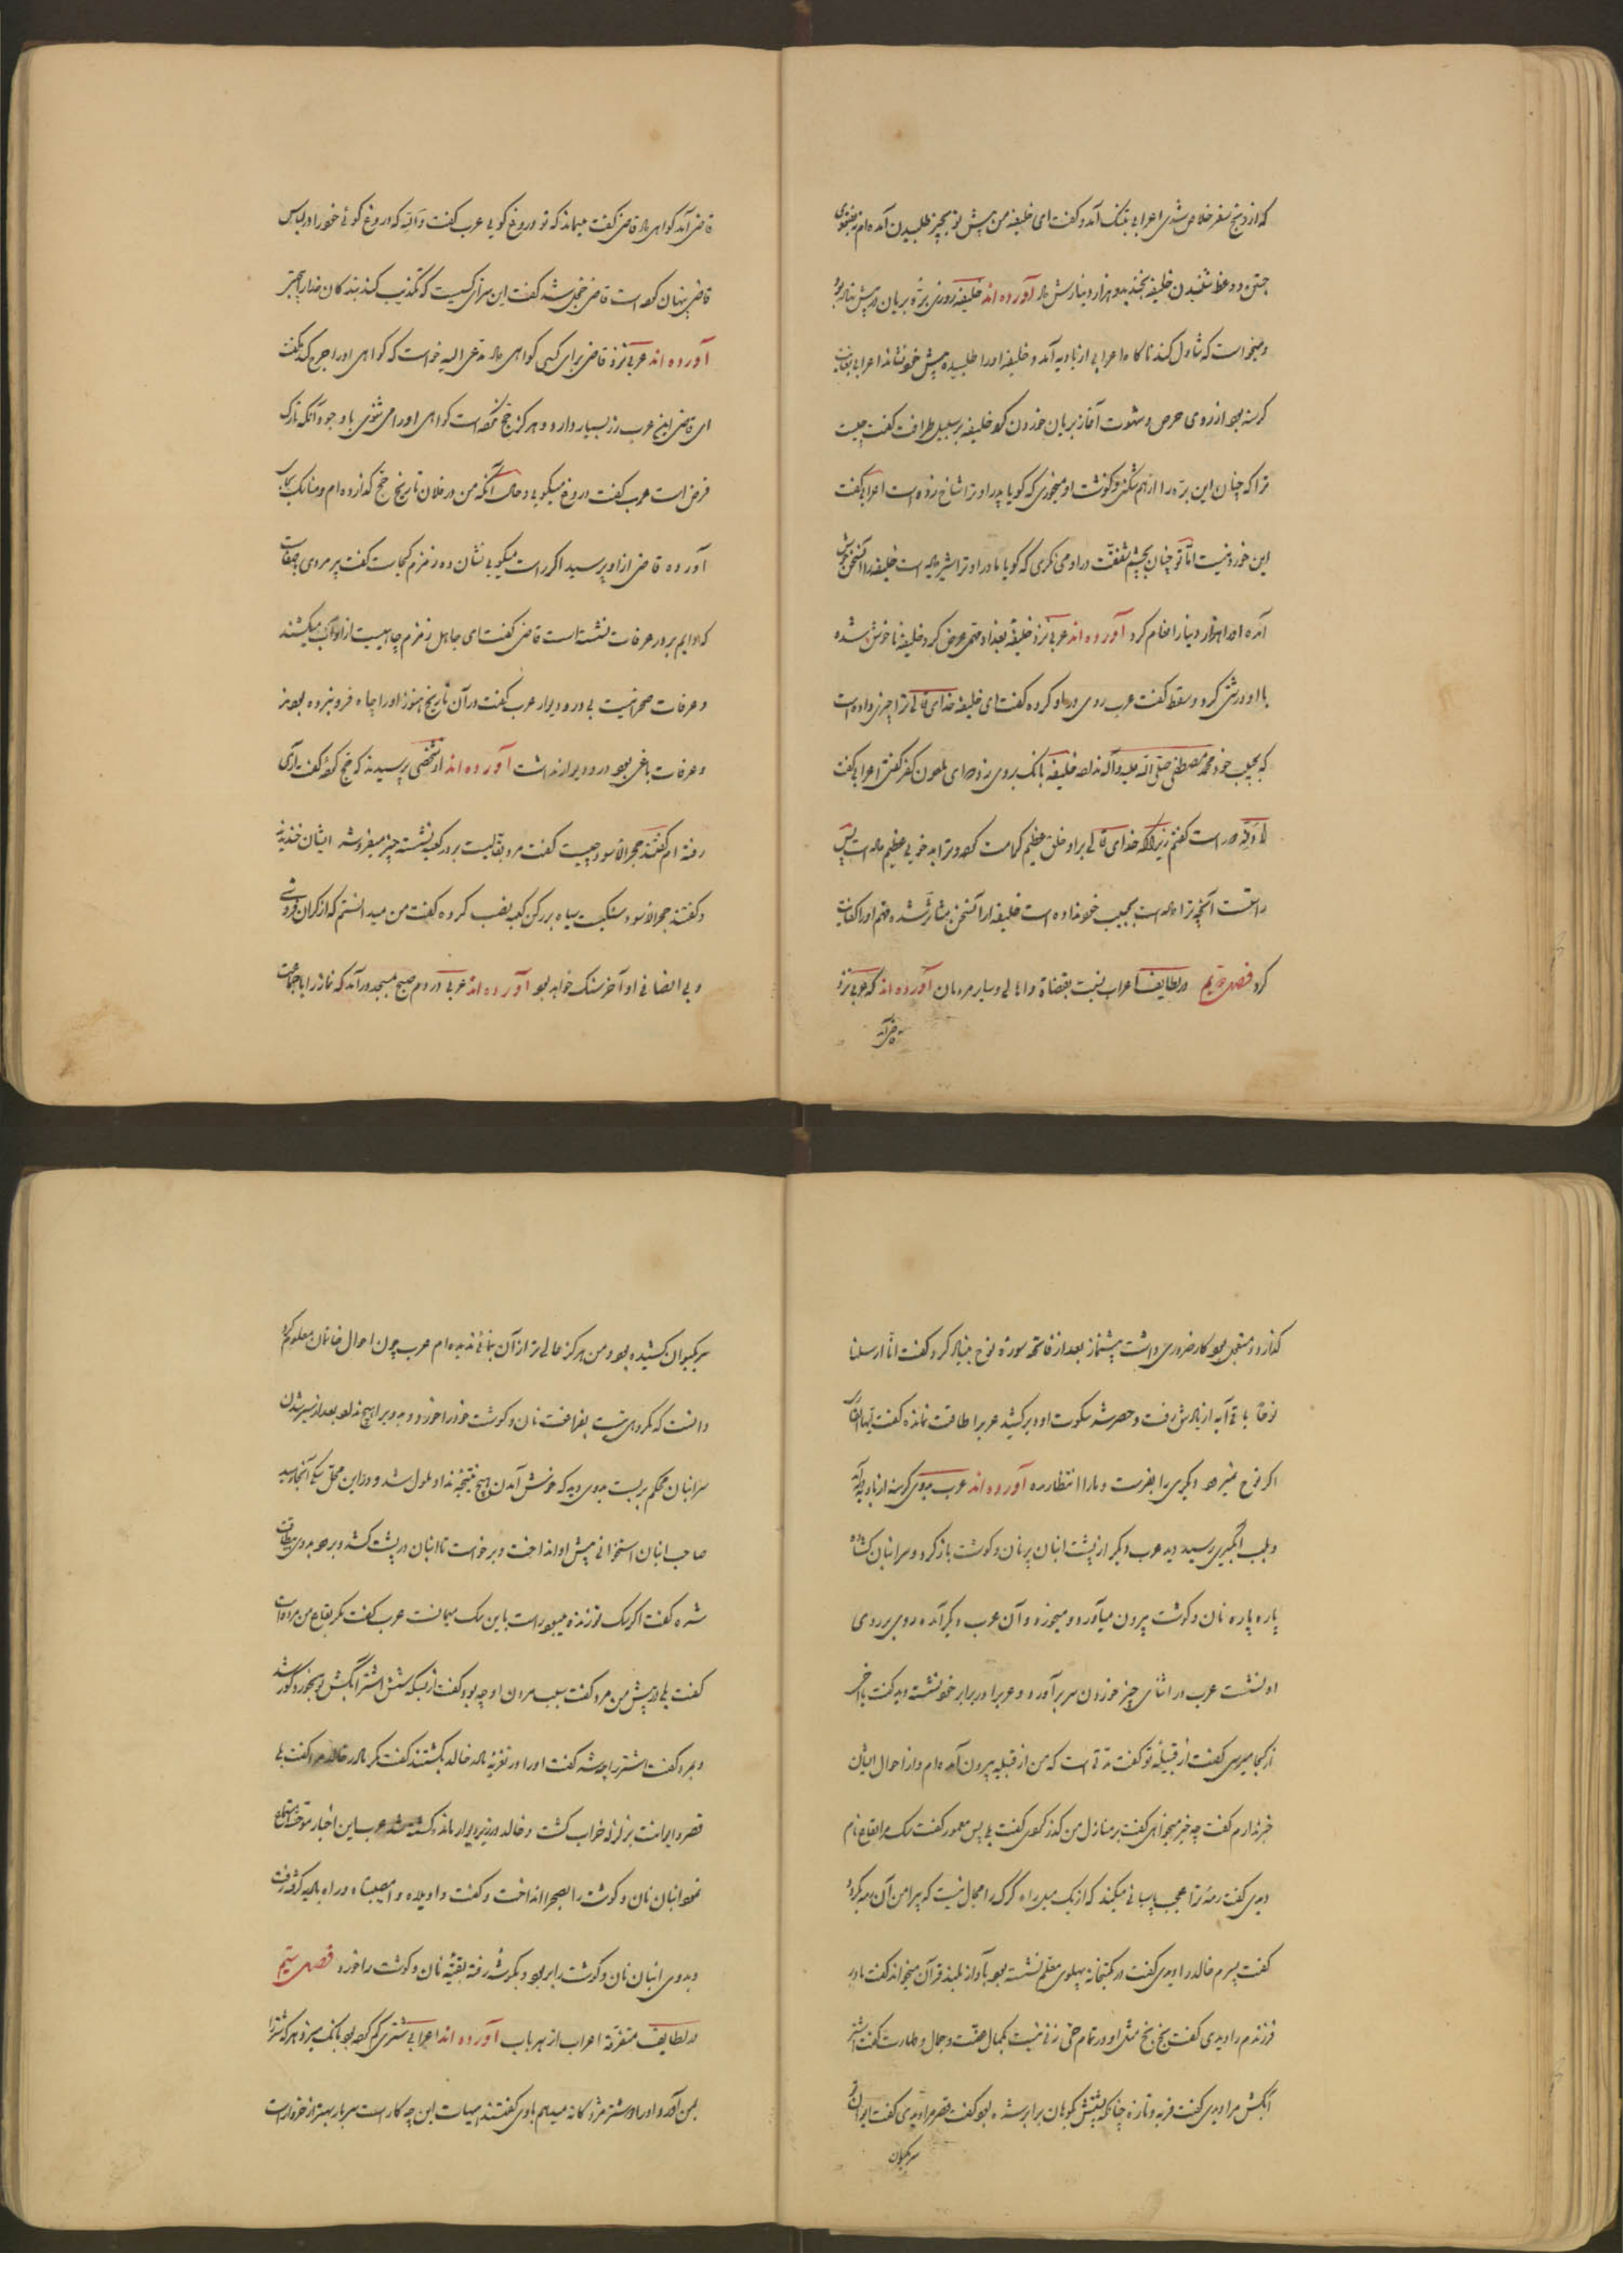 که از رنج سفر خلاص شدی اعرابی بتنگ آمد و گفت ای خلیفه من پیش تو بچیز طلبیدن آمده‌ام نه بفتوی
جستن و وعظ شنیدن خلیفه بخندید و هزار دینارش داد آورده اند خلیفه روزی بره بریان در پیش نهاده بود
و میخواست که تناول کند ناگاه اعرابی از بادیه آمد و خلیفه او را طلبیده پیش خود نشاند اعرابی بغایت
گرسنه بود از روی حرص و شهوت آغاز بریان خوردن کرد خلیفه بر سبیل ظرافت گفت چیست
ترا که چنان این بره را از هم میکنی و گوشت او میخوری که گویا پدر او ترا شاخ زده است اعرابی گفت
این خود نیست اما تو چنان بچشم شفقت در او می نگری که گویا مادر او ترا شیر داده است خلیفه را این سخن خوش
آمده او را هزار دینار انعام کرد آورده اند عربی نزد خلیفهٔ بغداد مهمی عرض کرد خلیفه ناخوش شده
با او درشتی کرد و سقط گفت عرب روی در او کرده گفت ای خلیفه خدای تعالی ترا چیزی داده است
که بحبیب خود محمد مصطفی صلی الله علیه و آله نداده خلیفه بانگ بر وی زد که ای ملعون کفر گفتی اعرابی گفت
لا والله راست گفتم زیرا که خدای تعالی بر او خلق عظیم کرامت کرده و ترا بدخویی عظیم داده است پس
راست آنچه ترا داده است بحبیب خود نداده است خلیفه را از آن سخن متأثر شده مهم او را کفایت
کرد فصل دویم در لطایف اعراب نسبت بقضاة و اهالی و سایر مردمان آورده اند که عربی نزد
قاضی آمد
قاضی آمد گواهی داد قاضی گفت میماند که تو دروغ گویی عرب گفت والله که دروغ گوئی خود را در لباس
قاضی پنهان کرده است قاضی خجل شد گفت این سزای کسیست که تکذیب کند بندگان خدا را بی چیز
آورده اند عربی نزد قاضی برای کسی گواهی داد مدعی الیه خواست که گواهی او را جرح کند گفت
ای قاضی این عرب زر بسیار دارد و هرگز حج نکرده است گواهی او را می شنوی با وجود آنکه تارک
فرض است عرب گفت دروغ میگویی و حال آنکه من در فلان تاریخ حج گذارده‌ام و مناسک بجا
آورده قاضی از او پرسید اگر راست میگویی نشان ده زمزم کجاست گفت پیر مردی بصفات
که دایم بر در عرفات نشسته است قاضی گفت ای جاهل زمزم چاهیست از او آب میکشند
و عرفات صحرائیست بی در و دیوار عرب گفت در آن تاریخ هنوز او را چاه فرو نبرده بودند
و عرفات باغی بود در و دیوار نداشت آورده اند از شخصی پرسیدند که حج کرده گفت آری
رفته‌ام گفتند حجر الاسود چیست گفت مرد بقالیست بر در کعبه نشسته چیز میفروشد ایشان خندیدند
و گفتند حجر الاسود سنگیست سیاه بر رکن کعبه نصب کرده گفت من میدانستم که از گران فروشی
و بی انصافی او آخر سنگ خواهد بود آورده اند عربی در دم صبح بمسجد در آمد که نماز را با جماعت
گذارد و متعجل بود کار ضروری داشت پیشنماز بعد از فاتحه سوره نوح بنیاد کرد و گفت انا ارسلنا
نوحا باقی آیه از یادش رفت و حصر شد سکوت او دیر کشید عرب را طاقت نمانده گفت
اگر نوح نمیرود دیگری را بفرست و ما را انتظار مده آورده اند عرب بدوی گرسنه از بادیه بر آمد
و بلب آبگیری رسید دید عرب دیگر از پشت انبان پر نان و گوشت باز کرد و سر انبان گشاده
پاره پاره نان و گوشت بیرون میآورد و میخورد و آن عرب دیگر آمده روبروی
او نشست عرب در اثنای چیز خوردن سر برآورد و عرب را در برابر خود نشسته دید گفت یا اخی
از کجا میرسی گفت از قبیله تو گفت مدتی است که من از قبیله بیرون آمده‌ام و از احوال ایشان
خبر ندارم گفت چه خبر میخواهی گفت بر منازل من گذر کردی گفت بلی بس معمور گفت سگ مرا بقاع نام
دیدی گفت رمه ترا عجب پاسبانی میکند که از یک میل راه گرگ را مجال نیست که پیرامن آن رمه گردد
گفت پسرم خالد را دیدی گفت در مکتبخانه پهلوی معلم نشسته بود بآواز بلند قرآن میخواند گفت مادر
فرزندم را دیدی گفت بخ بخ مثل او در تمام حی زنی نیست بکمال عفت و جمال و طهارت گفت اشتر
آبکش مرا دیدی گفت فربه و تازه چنانکه پشتش کوهان برابر شده بود گفت قصر مرا دیدی گفت ایوان آن
سر بکیوان
سر بکیوان کشیده بود و من هرگز عالی تر از آن بنائی ندیده‌ام عرب چون احوال خانمان معلوم کرد
دانست که مکروهی نیست بفراغت نان و گوشت خود را خورد و بدوی را هیچ نداد بعد از سیر شدن
سر انبان محکم بربست بدوی دید که خوش آمدن هیچ نتیجه نداد ملول شد و در این محل سگی آنجا رسید
صاحب انبان استخوانی پیش او انداخت و برخواست تا انبان در پشت کشد و برود بدوی بیطاقت
شده گفت اگر سگ تو زنده میبود راست باین سگ میمانست عرب گفت مگر بقاع من مرده است
گفت بلی در پیش من مرد گفت سبب مردن او چه بود گفت از بسکه شش اشتر آبکش تو بخورد کور شد
و بمرد گفت اشتر را چه شد گفت او را در تعزیهٔ مادر خالد بکشتند گفت مگر مادر خالد مرد گفت بلی
قصر و ایوانت بزلزله خراب گشت و خالد در زیر دیوار ماند و کشته شد عرب این اخبار موحش استماع
نمود انبان نان و گوشت را بصحرا انداخت و گفت واویلاه وامصیبتاه و راه بادیه گرفته رفت
و بدوی انبان نان و گوشت را بربود و بگوشهٔ رفته بقیهٔ نان و گوشت را خورد فصل سیم
در لطایف متفرقه اعراب از هر باب آورده اند اعرابی شتری گم کرده بود بانگ میزد هر که شتر را
بمن آورد او را دو شتر مژدگانه میدهم با وی گفتند هیهات این چه کار است سربار بهتر از خروار است